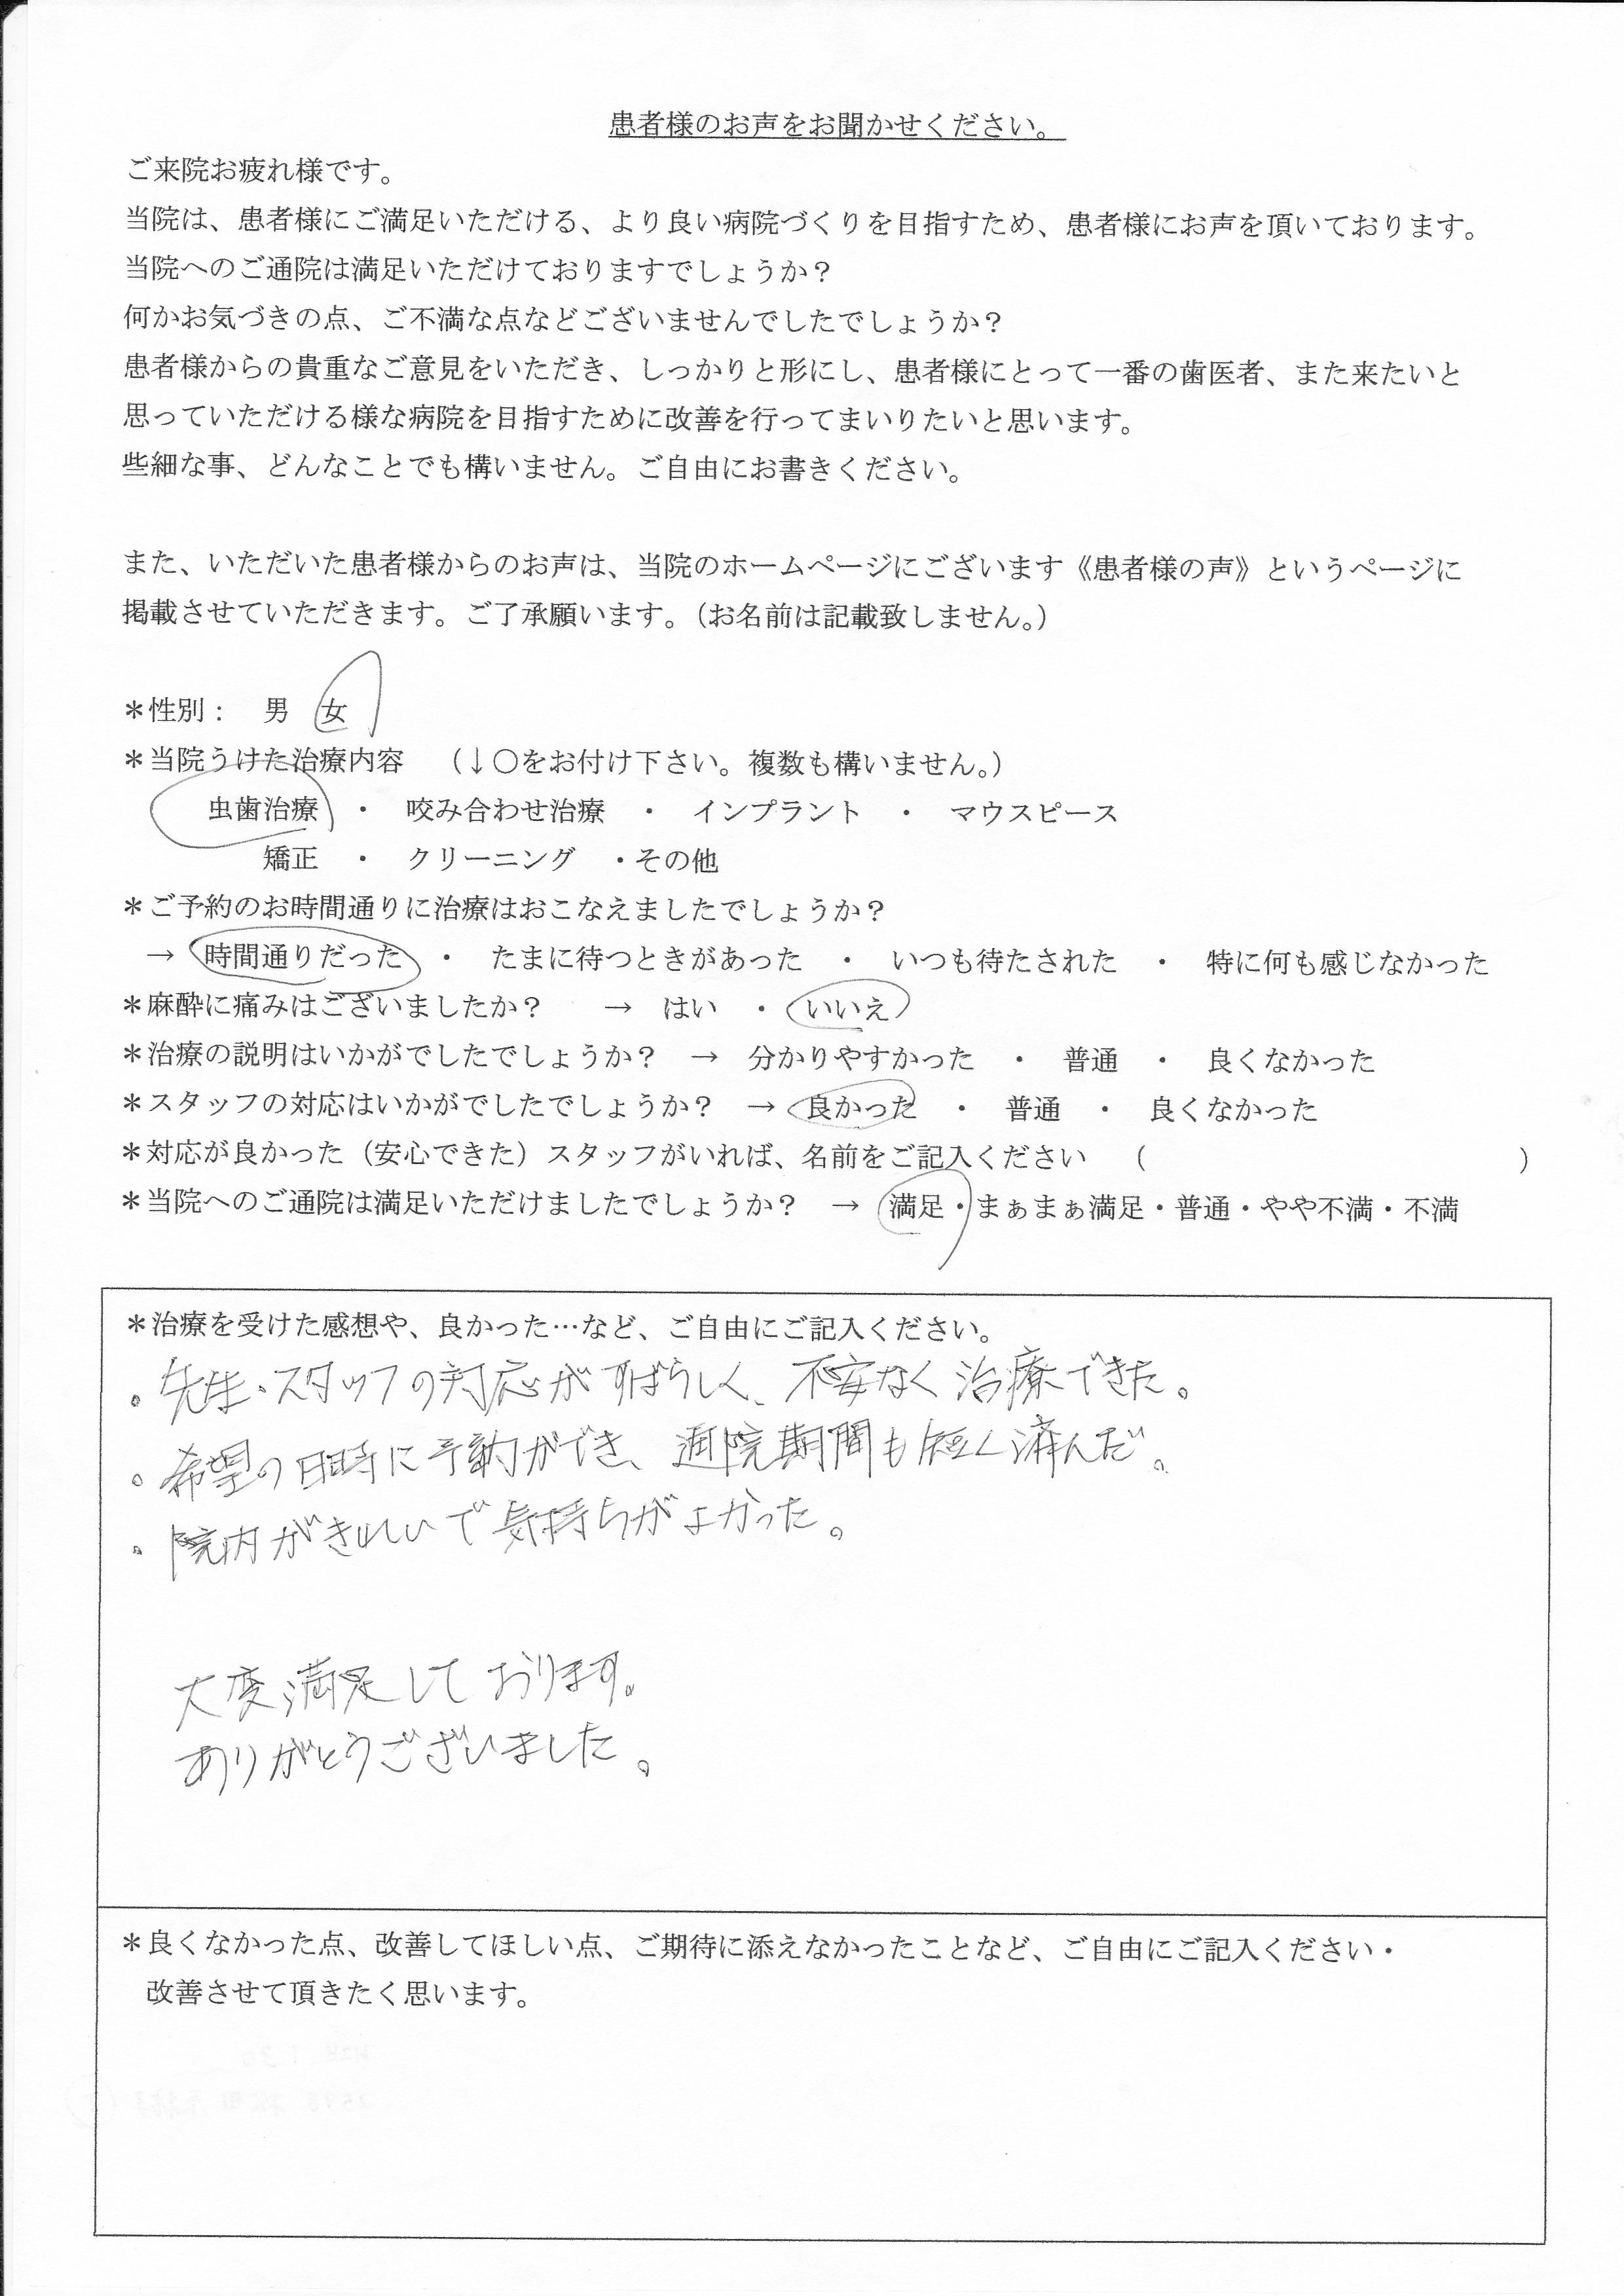 患者様のお声をお聞かせください。
ご来院お疲れ様です。
当院は、患者様にご満足いただける、より良い病院づくりを目指すため、患者様にお声を頂いております。
当院へのご通院は満足いただけておりますでしょうか？
何かお気づきの点、ご不満な点などございませんでしたでしょうか？
患者様からの貴重なご意見をいただき、しっかりと形にし、患者様にとって一番の歯医者、また来たいと
思っていただける様な病院を目指すために改善を行ってまいりたいと思います。
些細な事、どんなことでも構いません。ご自由にお書きください。
また、いただいた患者様からのお声は、当院のホームページにございます《患者様の声》というページに
掲載させていただきます。ご了承願います。（お名前は記載致しません。）
＊性別： 男 女
＊当院うけた治療内容 （↓○をお付け下さい。複数も構いません。）
虫歯治療 ・ 咬み合わせ治療 ・ インプラント ・ マウスピース
矯正 ・ クリーニング ・その他
＊ご予約のお時間通りに治療はおこなえましたでしょうか？
→ 時間通りだった ・ たまに待つときがあった ・ いつも待たされた ・ 特に何も感じなかった
＊麻酔に痛みはございましたか？ → はい ・ いいえ
＊治療の説明はいかがでしたでしょうか？ → 分かりやすかった ・ 普通 ・ 良くなかった
＊スタッフの対応はいかがでしたでしょうか？ → 良かった ・ 普通 ・ 良くなかった
＊対応が良かった（安心できた）スタッフがいれば、名前をご記入ください （ ）
＊当院へのご通院は満足いただけましたでしょうか？ → 満足・まぁまぁ満足・普通・やや不満・不満
＊治療を受けた感想や、良かった…など、ご自由にご記入ください。
。先生・スタッフの対応がすばらしく、不安なく治療できた。
。希望の日時に予約ができ、通院期間も短く済んだ。
。院内がきれいで気持ちがよかった。
大変満足しております。
ありがとうございました。
＊良くなかった点、改善してほしい点、ご期待に添えなかったことなど、ご自由にご記入ください・
改善させて頂きたく思います。